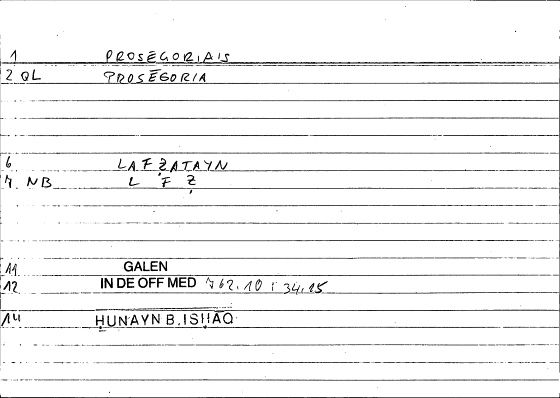 1 PROSEGORIAIS
2 QL PROSEGORIA
6 LAFẒATAYN
7 NB L F Ẓ
11 GALEN
12 IN DE OFF MED 762.10 : 34,15
14 ḤUNAYN B. ISḤĀQ